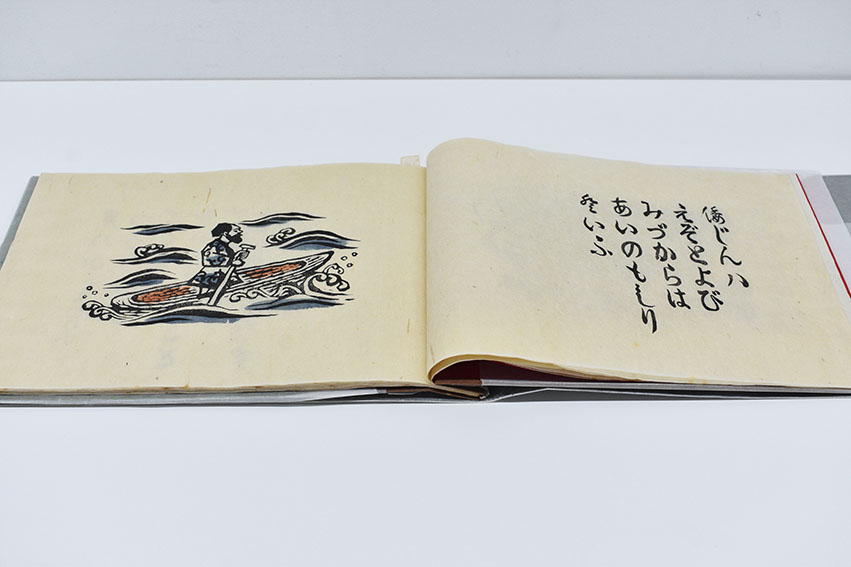 倭じんハ
えぞとよび
みづからは
あいのもしり
といふ